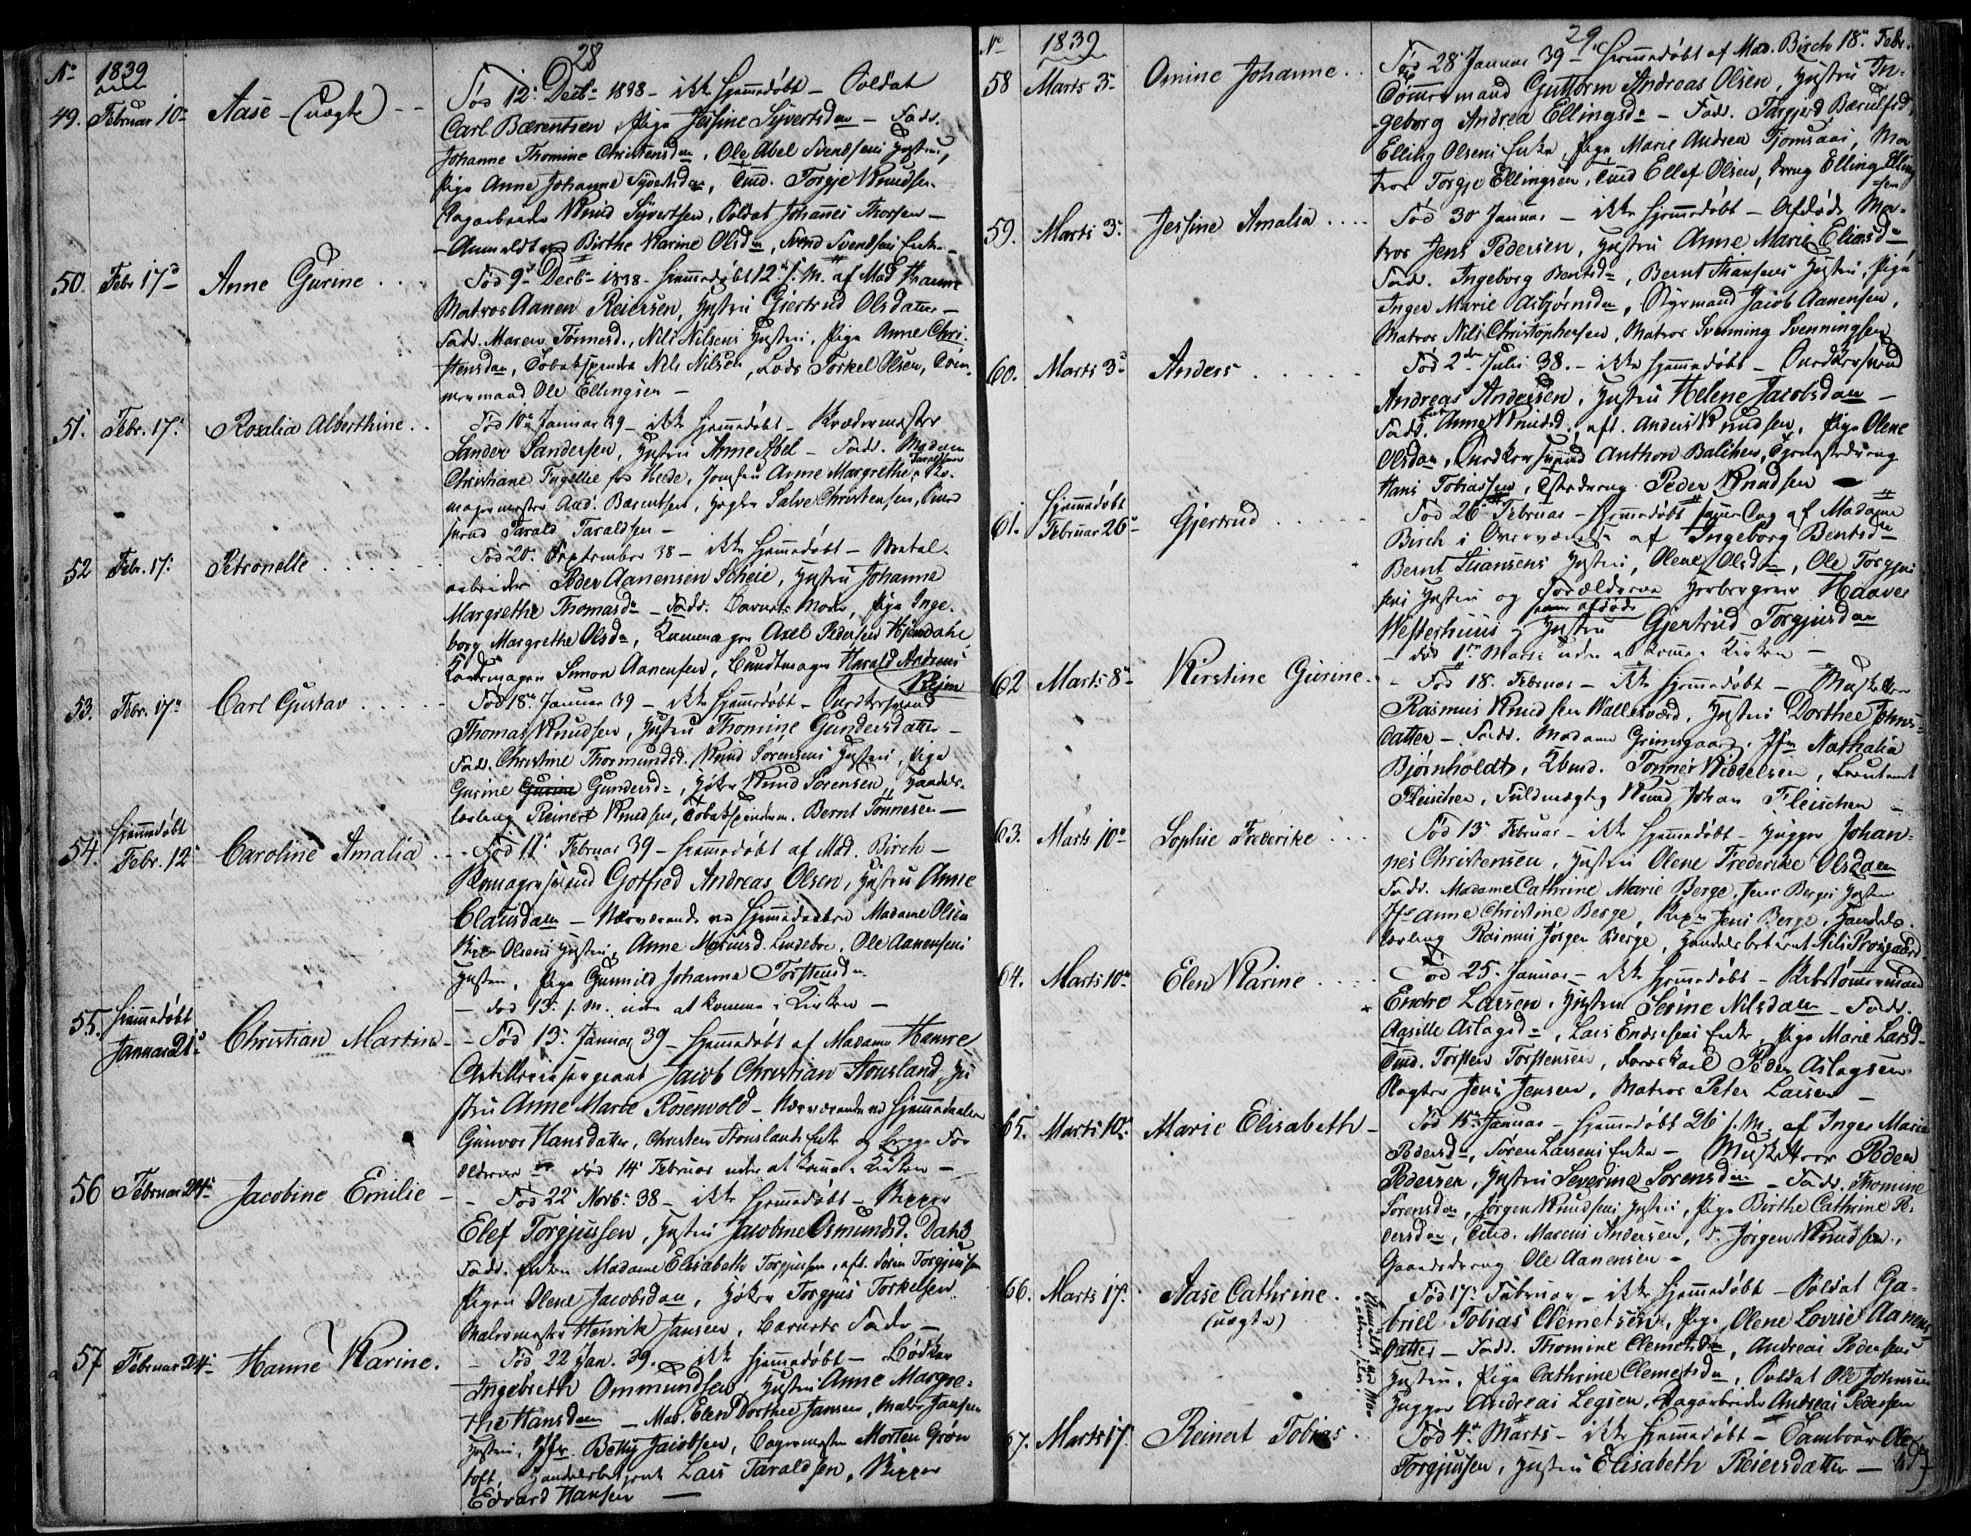 28
No 1839
49. Februar 10de Aase (uægte)
Fød 12te Decbr 1838 - ikke hjemmedøbt - Soldat
Carl Bærentsen, Pige Jessine Syvertsdr - Fadd.
Johanne Thomine Christensdr, Ole Abel Svendsens Hustru,
Pige Anne Johanne Syvertsdr, Tmd. Torgje Knudsen
Dagarbeider Knud Syvertsen, Soldat Johannes Thorsen -
Anmeldt Birthe Karine Olsdr, Svend Svendsens Enke
50. Febr 17de Anne Gurine
Fød 9de Decbr 1838. hjemmedøbt 12te s. M. af Mad Hanne
Matros Aanen Reiersen, Hustru Gjertrud Olsdatter -
Fadd. Maren Tønnesd., Nils Nilsens Hustru, Pige Anne Chri-
stensdr, Tobakspinder Nils Nilsen, Lods Torkel Olsen, Tøm-
mermand Ole Ellingsen -
51. Febr. 17. Rosalia Alberthine
Fød 10de Januar 39 - ikke hjemmedøbt - Skrædermester
Sander Sandersen, Hustru Anne Abel - Fadd. Madam
Christiane Fugellie fra Hede, Jomfru Anne Margrethe Taraldsen
magermester And. Barentsen, Salve Christensen,
svend Tarald Taraldsen -
52 Febr. 17. Petronelle
Fød 20de September 38 - ikke hjemmedøbt - Metal-
arbeider Peder Aanensen Scheie, Hustru Johanne
Margrethe Thomasdr - Fadd. Barnets Moder, Pige Inge-
borg Margrethe Olsdr, Axel Pedersen Hjemdahl,
Simon Aanensen, Bundtmager Harald Andreas
53. Febr. 17de Carl Gustav
Fød 18de Januar 39 - ikke hjemmedøbt - Snedkersvend
Thomas Knudsen, Hustru Thomine Gundersdatter -
Fadd. Christine Thormundsd. Knud Sørensens Hustru, Pige
Gurine Gurine Gundersdr, Høker Knud Sørensen, Handels-
lærling Reinert Knudsen, Tobakspinder Bernt Tønnesen -
54. Hjemmedøbt
Febr. 12te Caroline Amalia
Fød 11te Februar 39 - hjemmedøbt af Mad. Birch -
Skomagersvend Gotfred Andreas Olsen, Hustru Anne
Clausdatter - Nærværende ved Hjemmedaaben Madame Olsen
Olsens Hustru, Anne Mariusd. Lindeboe, Ole Aanensens
Hustru, Pige Gunnild Johanne Torstensdr
- død 13. s. M. uden at komme i Kirken -
55. Hjemmedøbt
Januar 21de Christian Martin
Fød 13. Januar 39 - hjemmedøbt af Madame Hanne
Artillerisergeant Jacob Christian Stousland, Hu-
stru Anne Marie Rosenvold - Nærværende ved Hjemmedaaben
Gunvor Hansdatter, Christen Stouslands Enke og begge For-
ældrene - død 14de Februar uden at komme i Kirken -
56 Februar 24de Jacobine Emilie
Fød 22de Novbr. 38 - ikke hjemmedøbt - Skipper
Elef Torgjussen, Hustru Jacobine Osmundsd. Dahl
Fadd. Enken Madame Elisabeth Torgjussen, afd. Søren Torgjussen
Pigen Olene Jacobsdatter, Høker Torgjus Torkelsen
Malermester Henrik Jansen, Barnets Fader -
57 Februar 24de Hanne Karine.
Fød 22 Jan. 39. ikke hjemmedøbt - Bødker
Ingebreth Ommundsen, Hustru Anne Margre-
the Hansdatter - Mad. Elen Dorthea Jansen, Maler Jansens
Hustru, Jfr. Betsy Jacobsen, Bagermester Morten Grøn-
toft, Handelsbetjent Lars Taraldsen, Skipper
Edvard Hansen -
29
No 1839
58 Marts 3de Omine Johanne
Fød 28de Januar 39 - hjemmedøbt af Mad. Birch 18de Febr.
Tømmermand Guttorm Andreas Olsen, Hustru In-
geborg Andrea Ellingsdr - Fadd. Targjerd Bærulfsd,
Elling Olsens Enke, Pige Marie Andrea Fjomsaas, Ma-
tros Torgje Ellingsen, Tmd Ellef Olsen, Dreng Elling Elling-
sen
59. Marts 3de Jessine Amalia
Fød 30 Januar - ikke hjemmedøbt - Afdøde Ma-
tros Jens Pedersen, Hustru Anne Marie Eliasdr
Fadd. Ingeborg Bentsdr, Bernt Stiansens Hustru, Pige
Inger Marie Asbjørnsdr, Styrmand Jacob Aanensen,
Matros Nils Christophersen, Matros Svenning Svenningsen
60. Marts 3de Anders
Fød 2den Juli 38. - ikke hjemmedøbt - Snedkersvend
Andreas Andersen, Hustru Helene Jacobsdatter -
Fadd. Anne Knudsd, aft. Anders Knudsen, Pige Olene
Olsdatter, Snedkersvend Anthon Balchen, Tjenestedreng
Hans Tobiassen, Peder Knudsen
61. Hjemmedøbt
Februar 26de Gjertrud
Fød 26de Februar - hjemmedøbt samme Dag af Madame
Birch i Overværelse af Ingeborg Bentsdr
Bernt Stiansens Hustru, Olene Olsdr, Ole Torgjus-
sens Hustru og Forældrene Haaver
Westerhuus og Hustru Gjertrud Torgjusdatter
- død 1ste Marts uden at komme i Kirken -
62 Marts 8de Kirstine Gurine
Fød 18. Februar - ikke hjemmedøbt - Musketer
Rasmus Knudsen Wallesværd, Hustru Dorthee Johns-
datter - Fadd. Madame Grimsgaard, Jfr Nathalia
Bjørnholdt, Tønnes Kittelsen, Leutenant
Fleischer, Fuldmægtig Knud Johan Fleischer
63. Marts 10de Sophie Frederike
Fød 13de Februar - ikke hjemmedøbt - Hugger Johan-
nes Christensen, Hustru Olene Frederike Olsdatter
Fadd. Madame Cathrine Marie Berge, Jens Berges Hustru
Jfr Anne Christine Berge, Jens Berge, Handels-
lærling Rasmus Jørgen Berge, Handelsbetjent Nils
64. Marts 10de Elen Karine
Fød 25. Januar - ikke hjemmedøbt - Skibstømmermand
Endre Larsen, Hustru Serine Nilsdatter - Fadd.
Aasille Aslagsdr, Lars Endresens Enke, Pige Marie Larsd
Tmd. Torsten Torstensen, Peder Aslagsen
Slagter Jens Jensen, Matros Peter Larsen -
65. Marts 10de Marie Elisabeth
Fød 15de Januar - hjemmedøbt 26 s. M. af Inger Marie
Pedersdr, Søren Larsens Enke - Musketeer Peder
Pedersen, Hustru Severine Sørensdr - Fadd. Thomine
Sørensdr, Jørgen Knudsens Hustru, Pige Birthe Cathrine Pe-
dersdr, Tmd. Marcus Andersen, Jørgen Knudsen,
Gaardsdreng Ole Aanensen -
66. Marts 17. Aase Cathrine
(uægte)
Fød 17. Februar - ikke hjemmedøbt - Soldat Ga-
briel Tobias Clemetsen, Pige Olene Lovise Aanens-
datter - Fadd. Thomine Clemetsdr, Andreas Pedersens
Hustru, Pige Cathrine Clemetsdr, Soldat Ole Johnsen
Hugger Andreas Legsen, Dagarbeider Andreas Pedersen
67. Marts 17. Reinert Tobias
Fød 4de Marts - ikke hjemmedøbt - Tambour Ole
Torgjussen, Hustru Elisabeth Reiersdatter - Fadd